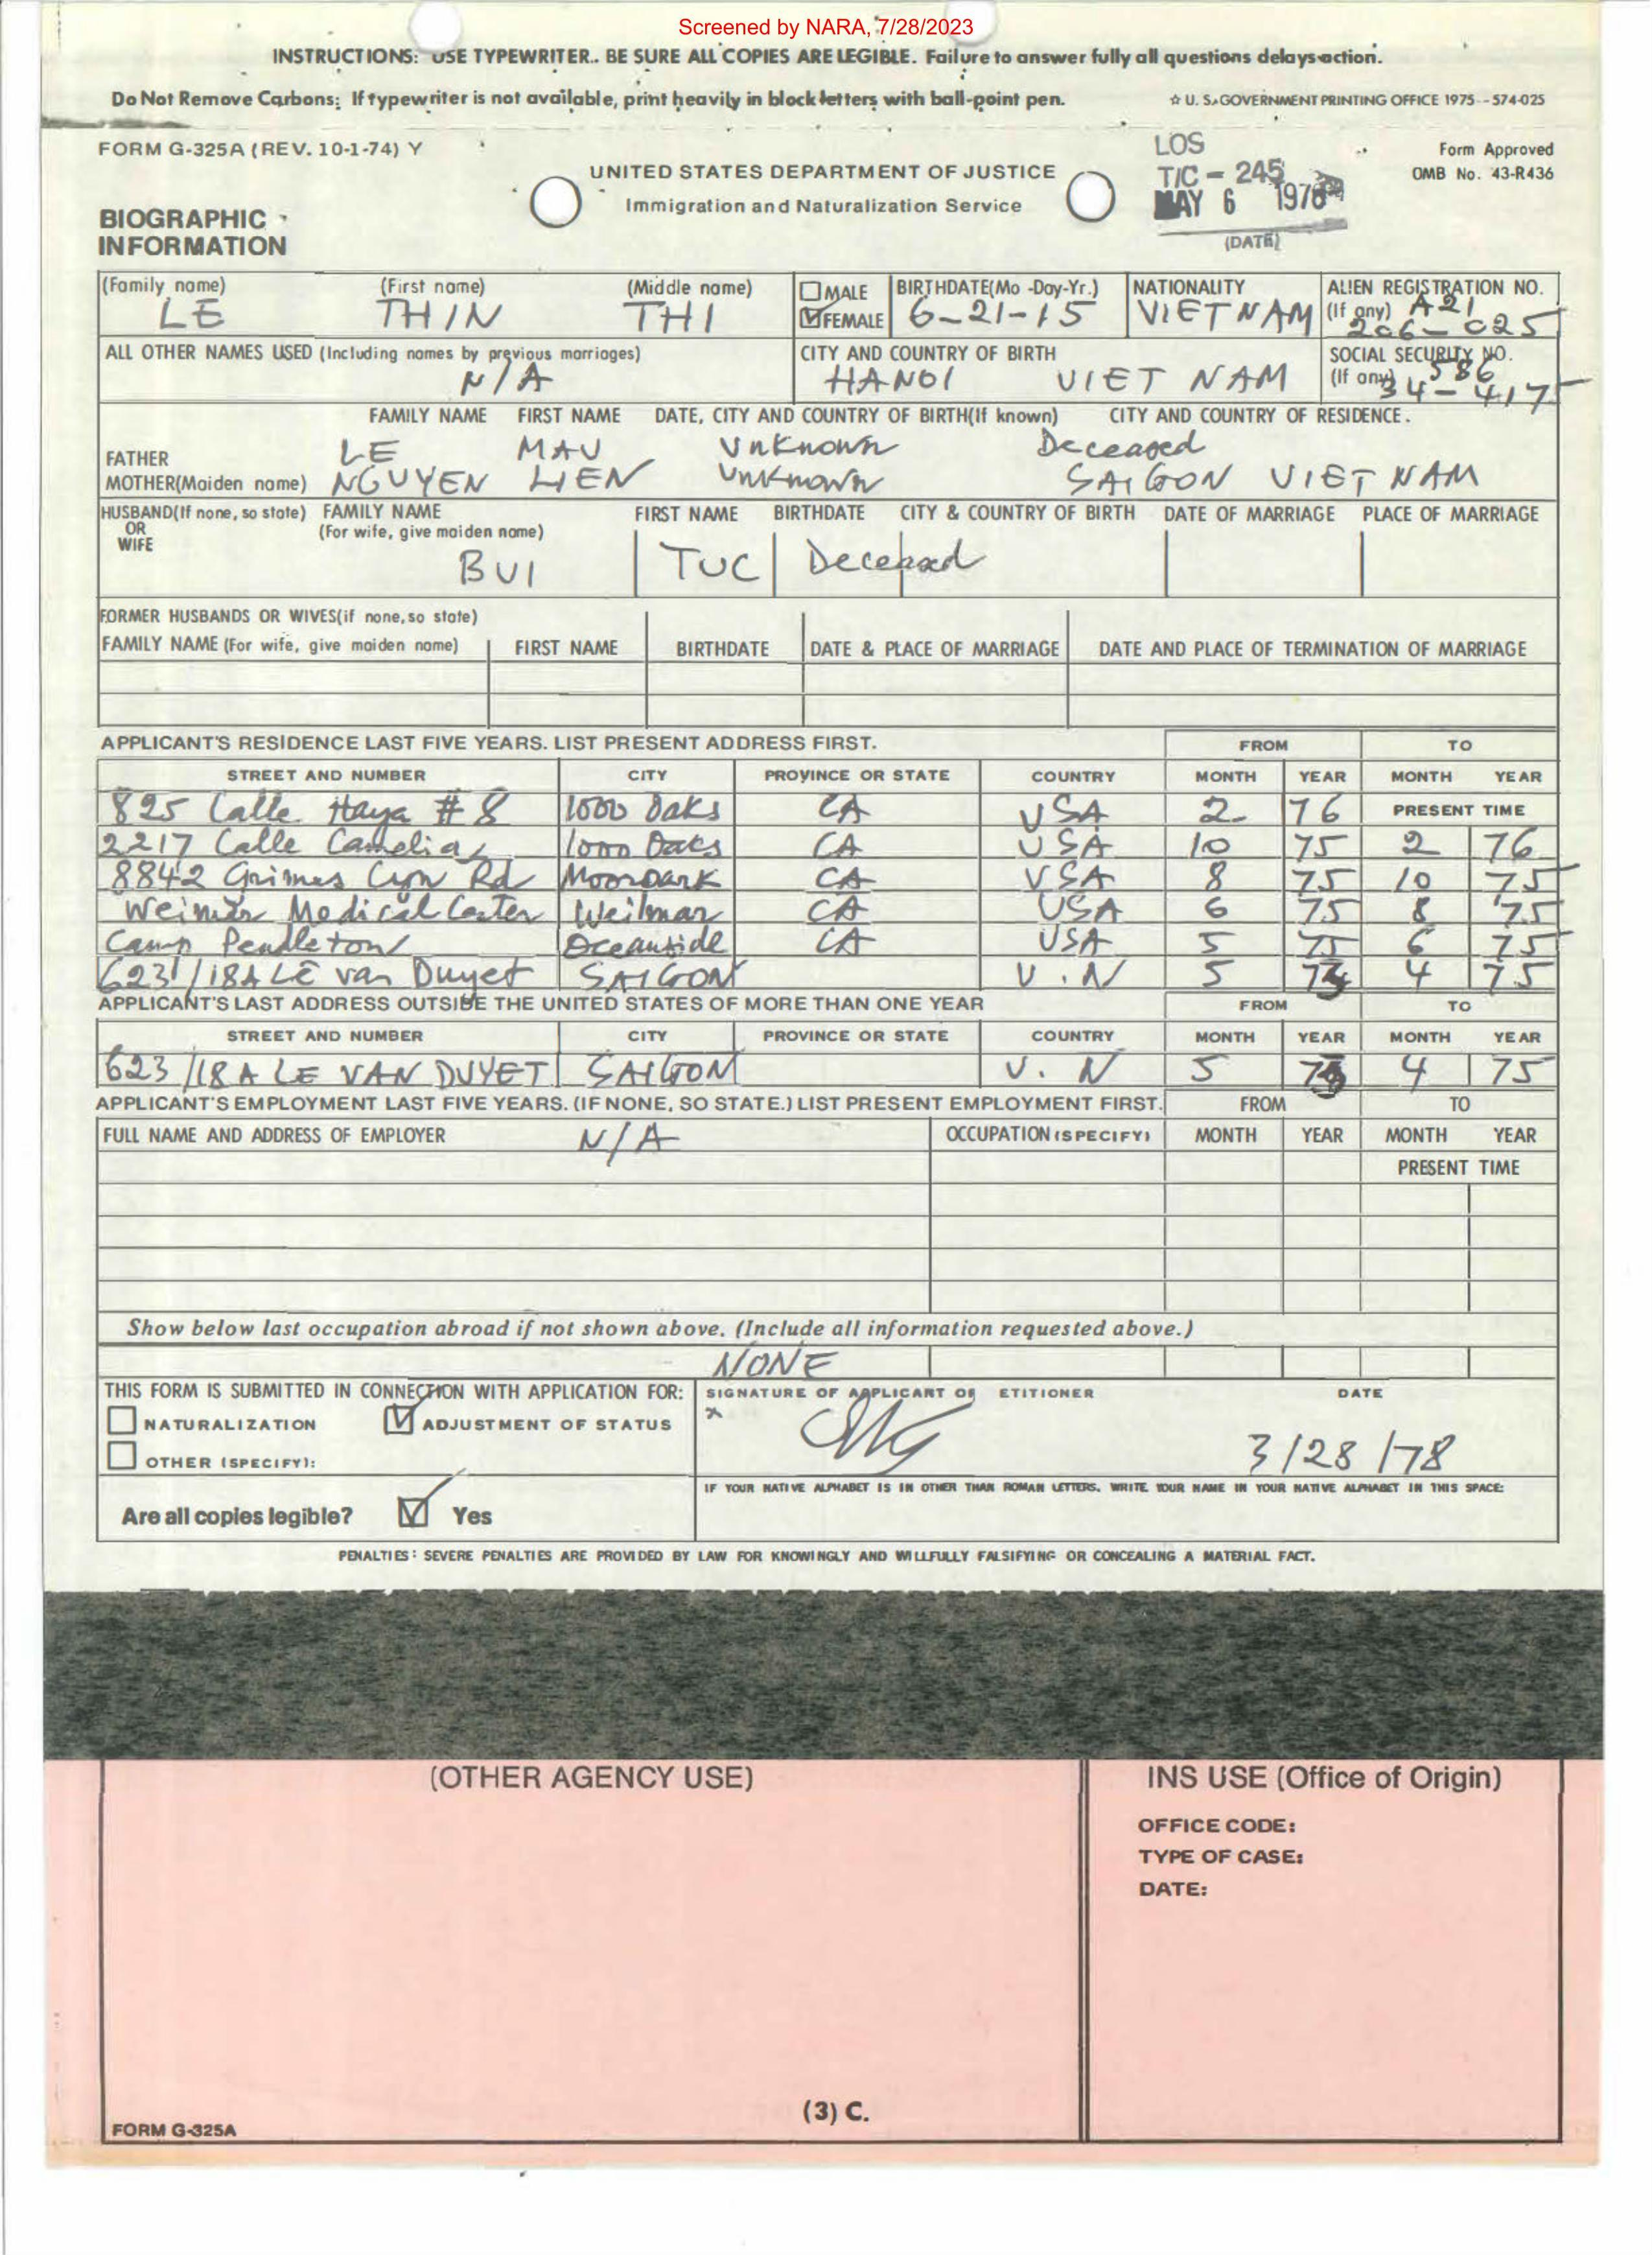 Screened by NARA, 7/28/2023
INSTRUCTIONS: USE TYPEWRITER. BE SURE ALL COPIES ARE LEGIBLE. Failure to answer fully all questions delays action.
Do Not Remove Carbons: If typewriter is not available, print heavily in block letters with ball-point pen. ☆ U. S. GOVERNMENT PRINTING OFFICE 1975--574-025
FORM G-325A (REV. 10-1-74) Y
LOS
Form Approved
UNITED STATES DEPARTMENT OF JUSTICE
T/C - 245
OMB No. 43-R436
Immigration and Naturalization Service
MAY 6 1978
BIOGRAPHIC
INFORMATION
(DATE)
(Family name) (First name) (Middle name) MALE BIRTHDATE(Mo -Day-Yr.) NATIONALITY ALIEN REGISTRATION NO.
LE THIN THI FEMALE 6-21-15 VIETNAM (If any) A21
206-025
ALL OTHER NAMES USED (Including names by previous marriages) CITY AND COUNTRY OF BIRTH SOCIAL SECURITY NO.
N/A HANOI VIET NAM (If any) 586
34-4175
FAMILY NAME FIRST NAME DATE, CITY AND COUNTRY OF BIRTH(If known) CITY AND COUNTRY OF RESIDENCE.
FATHER LE MAU Unknown Deceased
MOTHER(Maiden name) NGUYEN LIEN Unknown SAIGON VIET NAM
HUSBAND(If none, so state) FAMILY NAME FIRST NAME BIRTHDATE CITY & COUNTRY OF BIRTH DATE OF MARRIAGE PLACE OF MARRIAGE
OR (For wife, give maiden name)
WIFE
BUI TUC Deceased
FORMER HUSBANDS OR WIVES(if none, so state)
FAMILY NAME (For wife, give maiden name) FIRST NAME BIRTHDATE DATE & PLACE OF MARRIAGE DATE AND PLACE OF TERMINATION OF MARRIAGE
APPLICANT'S RESIDENCE LAST FIVE YEARS. LIST PRESENT ADDRESS FIRST. FROM TO
STREET AND NUMBER CITY PROVINCE OR STATE COUNTRY MONTH YEAR MONTH YEAR
825 Calle Haya # 8 1000 Oaks CA USA 2 76 PRESENT TIME
2217 Calle Camelia, 1000 Oaks CA USA 10 75 2 76
8842 Grimes Cyn Rd Moorpark CA USA 8 75 10 75
Weimar Medical Center Weimar CA USA 6 75 8 75
Camp Pendleton Oceanside CA USA 5 75 6 75
623/18A LÊ van Duyet SAIGON V.N 5 4 75
APPLICANT'S LAST ADDRESS OUTSIDE THE UNITED STATES OF MORE THAN ONE YEAR FROM TO
STREET AND NUMBER CITY PROVINCE OR STATE COUNTRY MONTH YEAR MONTH YEAR
623/18A LE VAN DUYET SAIGON V. N 5 4 75
APPLICANT'S EMPLOYMENT LAST FIVE YEARS. (IF NONE, SO STATE.) LIST PRESENT EMPLOYMENT FIRST. FROM TO
FULL NAME AND ADDRESS OF EMPLOYER N/A OCCUPATION (SPECIFY) MONTH YEAR MONTH YEAR
PRESENT TIME
Show below last occupation abroad if not shown above. (Include all information requested above.)
NONE
THIS FORM IS SUBMITTED IN CONNECTION WITH APPLICATION FOR: SIGNATURE OF APPLICANT OR ETITIONER DATE
NATURALIZATION ADJUSTMENT OF STATUS x
OTHER (SPECIFY): 3/28/78
IF YOUR NATIVE ALPHABET IS IN OTHER THAN ROMAN LETTERS, WRITE YOUR NAME IN YOUR NATIVE ALPHABET IN THIS SPACE:
Are all copies legible? Yes
PENALTIES: SEVERE PENALTIES ARE PROVIDED BY LAW FOR KNOWINGLY AND WILLFULLY FALSIFYING OR CONCEALING A MATERIAL FACT.
(OTHER AGENCY USE) INS USE (Office of Origin)
OFFICE CODE:
TYPE OF CASE:
DATE:
(3) C.
FORM G-325A